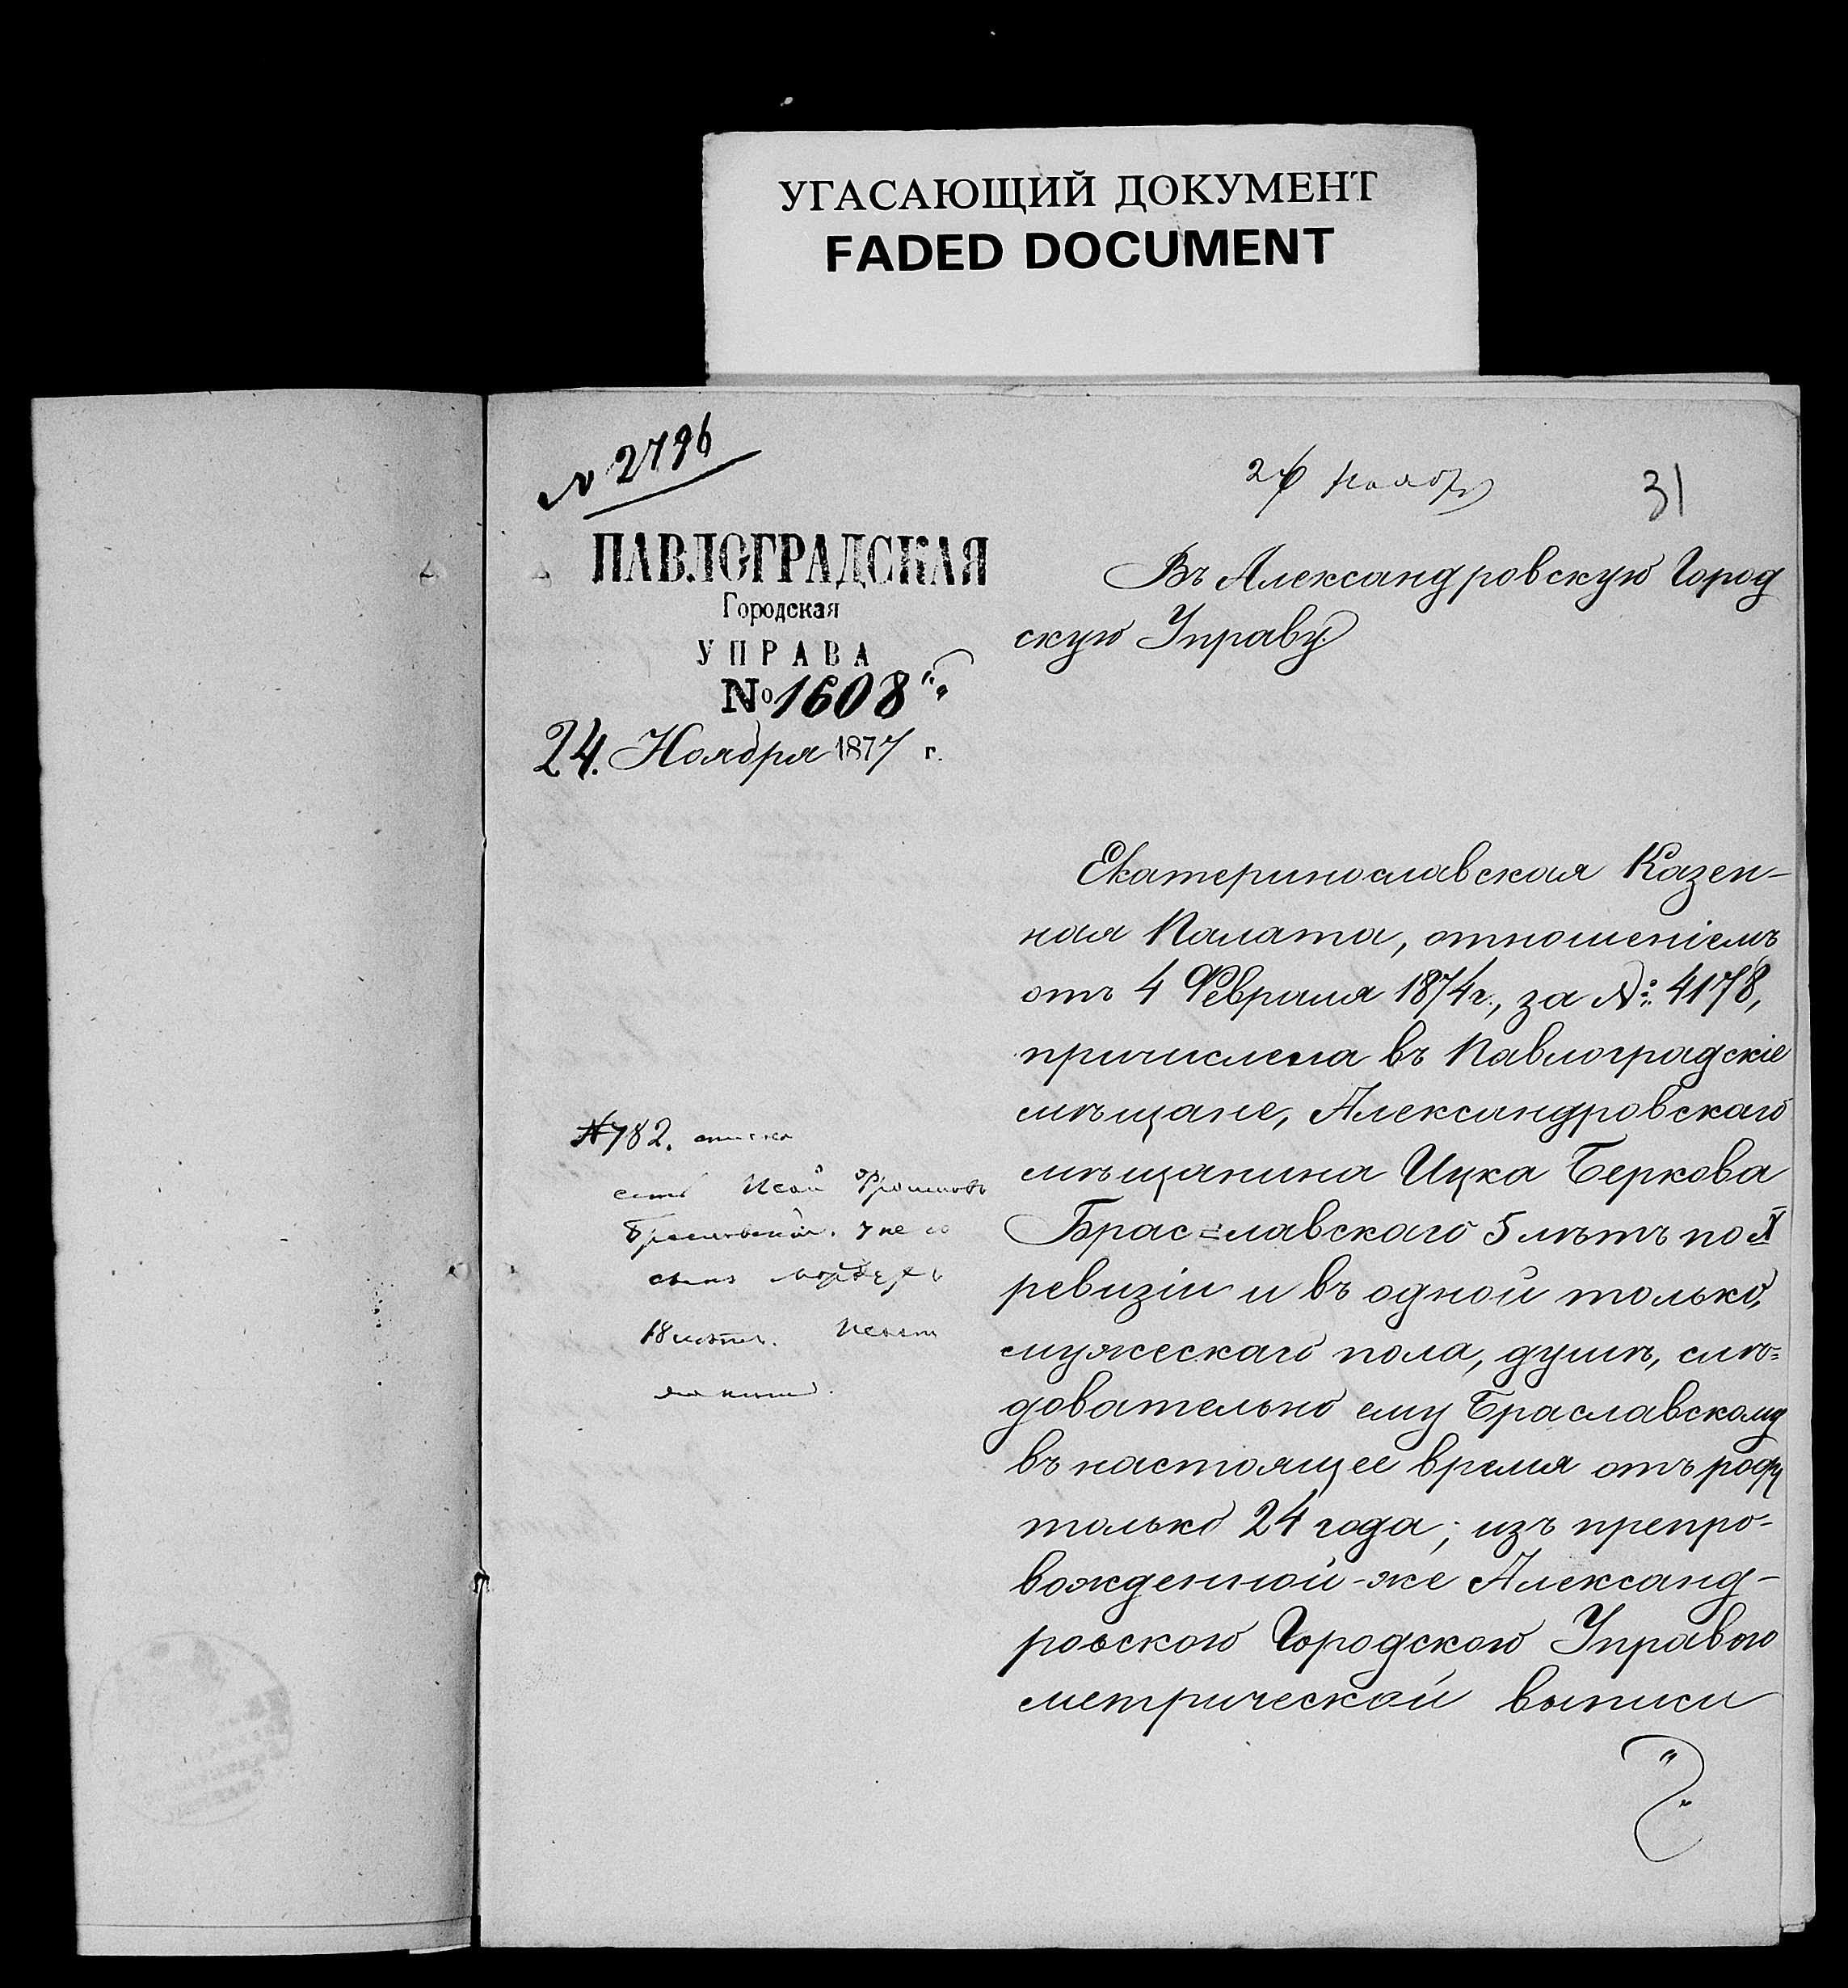 УГАСАЮЩИЙ ДОКУМЕНТ
FADED DOCUMENT
N 2796
31
ПАВЛОГРАДСКАЯ
Городская
УПРАВА
№ 1608
24. Ноября 1877 г.
Въ Александровскую Город
скую Управу
Екатеринославская Казен-
ная Палата, отношеніемъ
отъ 4 Февраля 1874 г., за №: 4178,
причислена въ Павлоградскіе
мѣщане, Александровскаго
мѣщанина Ицка Беркова
Брас=лавскаго 5 лѣтъ по X
ревизіи и въ одной только,
мужескаго пола, душѣ, слѣ=
довательно ему Браславскому
въ настоящее время отъ роду
только 24 года; изъ препро-
вожденной-же Александ-
ровскою Городскою Управою
метрической выписи
№782.
18 лѣтъ.